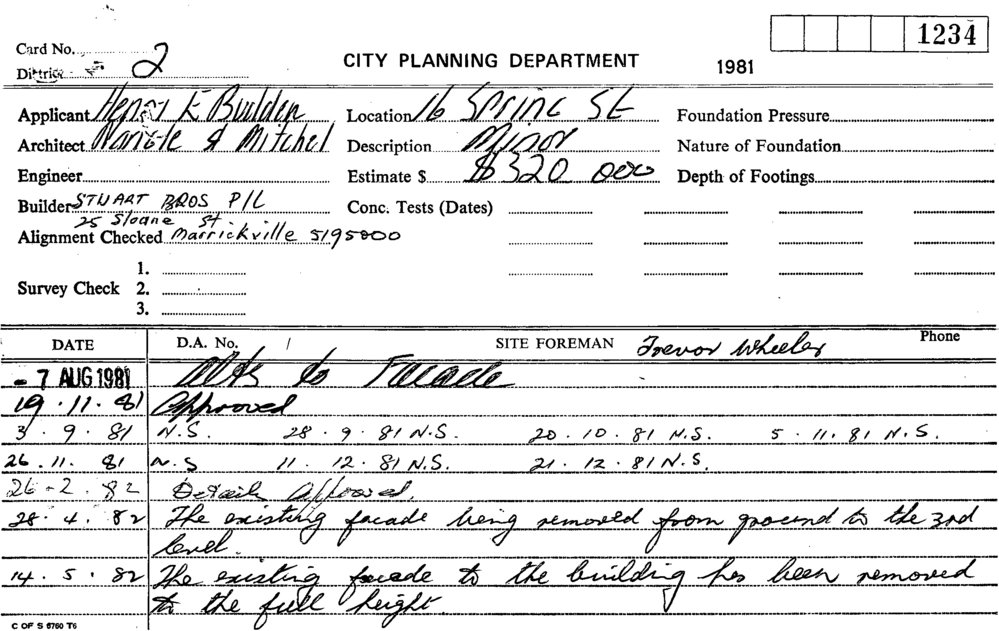 1234
Card No. 2
District
CITY PLANNING DEPARTMENT 1981
Applicant Henry E Builden Location 16 Spring St Foundation Pressure
Architect & Mitchel Description Minor Nature of Foundation
Engineer Estimate $ $320 000 Depth of Footings
Builder STUART BROS P/L Conc. Tests (Dates)
25 Sloane St
Alignment Checked Marrickville 5195000
1.
Survey Check 2.
3.
DATE D.A. No. / SITE FOREMAN Trevor Wheeler Phone
- 7 AUG 1981 Alts to Facade
19 . 11 . 81 Approved
3 . 9 . 81 N.S. 28 . 9 . 81 N.S. 20 . 10 . 81 N.S. 5 . 11 . 81 N.S.
26 . 11 . 81 N.S 11 . 12 . 81 N.S. 21 . 12 . 81 N.S.
26 - 2 . 82 Details Approved.
28 . 4 . 82 The existing facade being removed from ground to the 3rd
level.
14 . 5 . 82 The existing facade to the building has been removed
to the full height.
C OF S 6760 T6